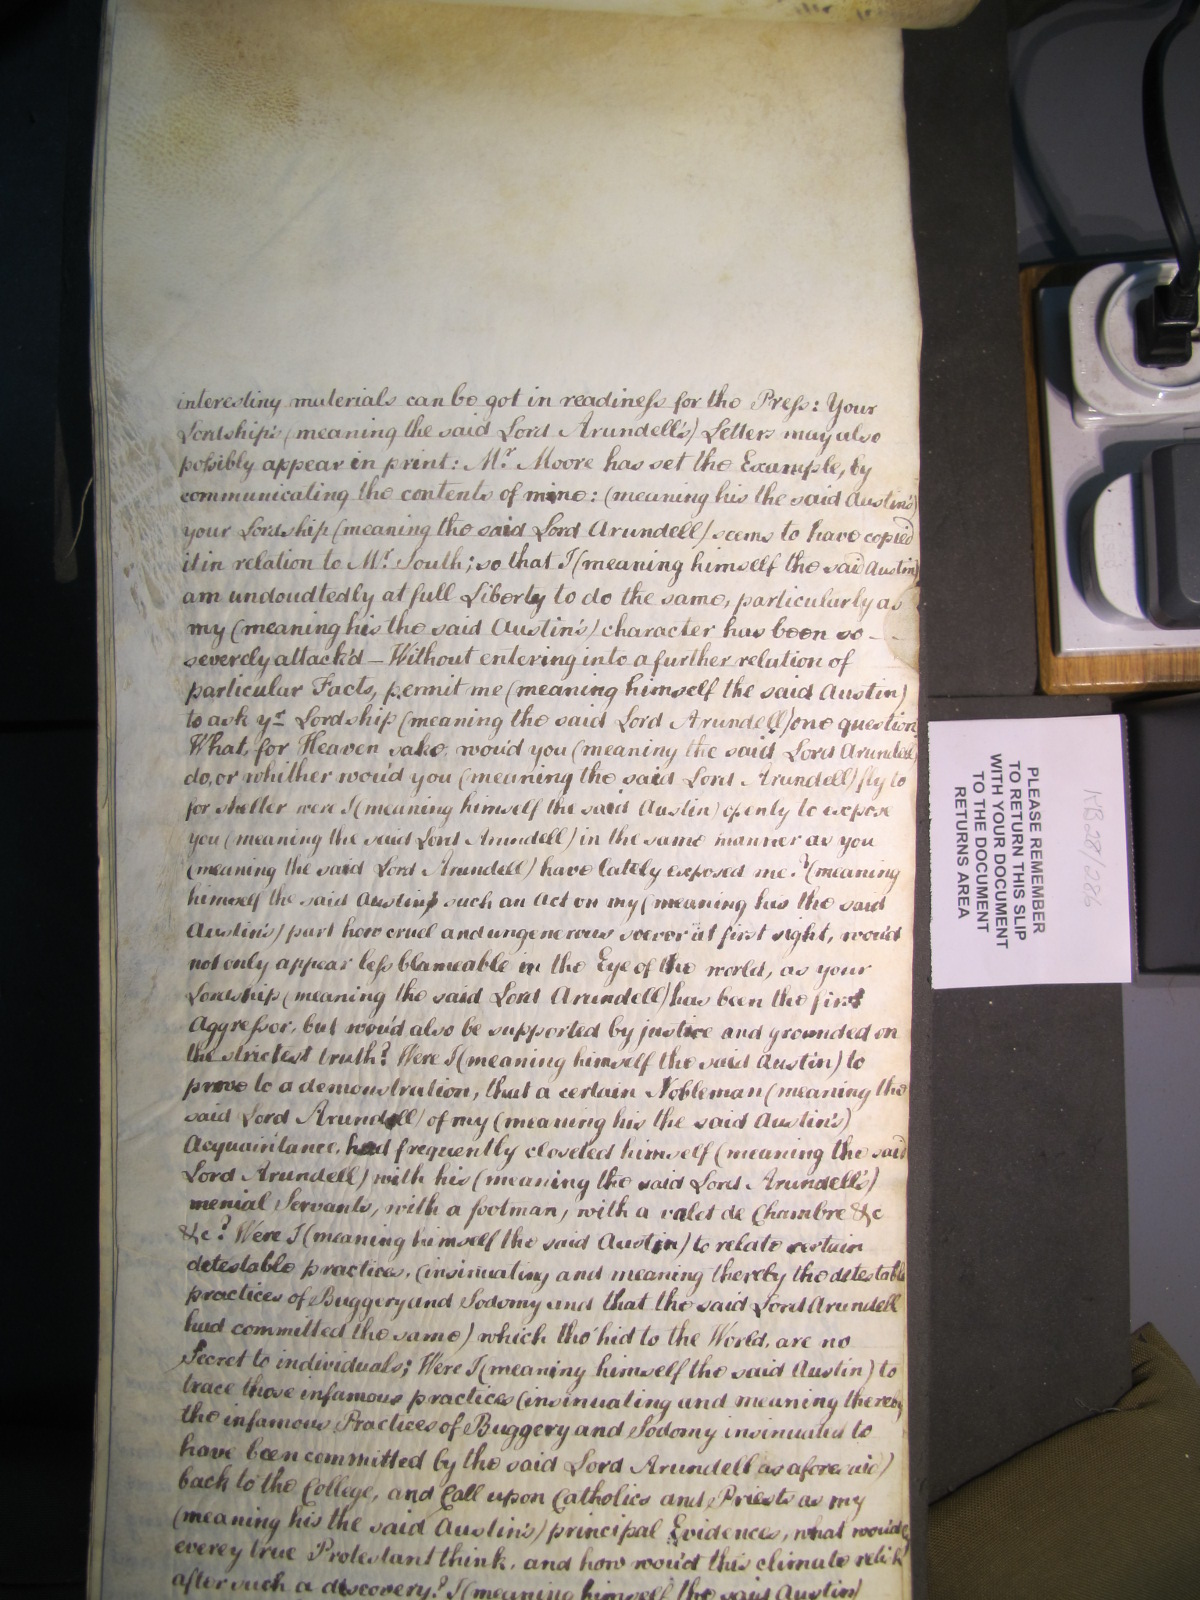 interesting materials can be got in readiness for the Press: Your
Lordship's (meaning the said Lord Arundell's) Letters may also
possibly appear in print: Mr. Moore has set the Example, by
communicating the contents of mine: (meaning his the said Austin's)
your Lordship (meaning the said Lord Arundell) seems to have copied
it in relation to Mr. South; so that I (meaning himself the said Austin)
am undoudtedly at full Liberty to do the same, particularly as
my (meaning his the said Austin's) character has been so
severely attack'd — Without entering into a further relation of
particular Facts, permit me (meaning himself the said Austin)
to ask yr Lordship (meaning the said Lord Arundell) one question
What, for Heaven sake, wou'd you (meaning the said Lord Arundell)
do, or whither wou'd you (meaning the said Lord Arundell) fly to
for shelter were I (meaning himself the said Austin) openly to expose
you (meaning the said Lord Arundell) in the same manner as you
(meaning the said Lord Arundell) have lately exposed me? (meaning
himself the said Austin) such an Act on my (meaning his the said
Austin's) part how cruel and ungenerous soever at first sight, wou'd
not only appear less blameable in the Eye of the world, as your
Lordship (meaning the said Lord Arundell) has been the first
Aggressor, but wou'd also be supported by justice and grounded on
the strictest truth? Were I (meaning himself the said Austin) to
prove to a demonstration, that a certain Nobleman (meaning the
said Lord Arundell) of my (meaning his the said Austin's)
Acquaintance, had frequently closeted himself (meaning the said
Lord Arundell) with his (meaning the said Lord Arundell's)
menial Servants, with a footman, with a valet de Chambre &c
&c? Were I (meaning himself the said Austin) to relate certain
detestable practices, (insinuating and meaning thereby the detestable
practices of Buggery and Sodomy and that the said Lord Arundell
had committed the same) which tho' hid to the World, are no
Secret to individuals; Were I (meaning himself the said Austin) to
trace those infamous practices (insinuating and meaning thereby
the infamous Practices of Buggery and Sodomy insinuated to
have been committed by the said Lord Arundell as aforesaid)
back to the College, and Call upon Catholics and Priests as my
(meaning his the said Austin's) principal Evidences, what wou'd
everey true Protestant think, and how wou'd this climate relish
after such a discovery? I (meaning himself the said Austin)
PLEASE REMEMBER
TO RETURN THIS SLIP
WITH YOUR DOCUMENT
TO THE DOCUMENT
RETURNS AREA
KB 28/286